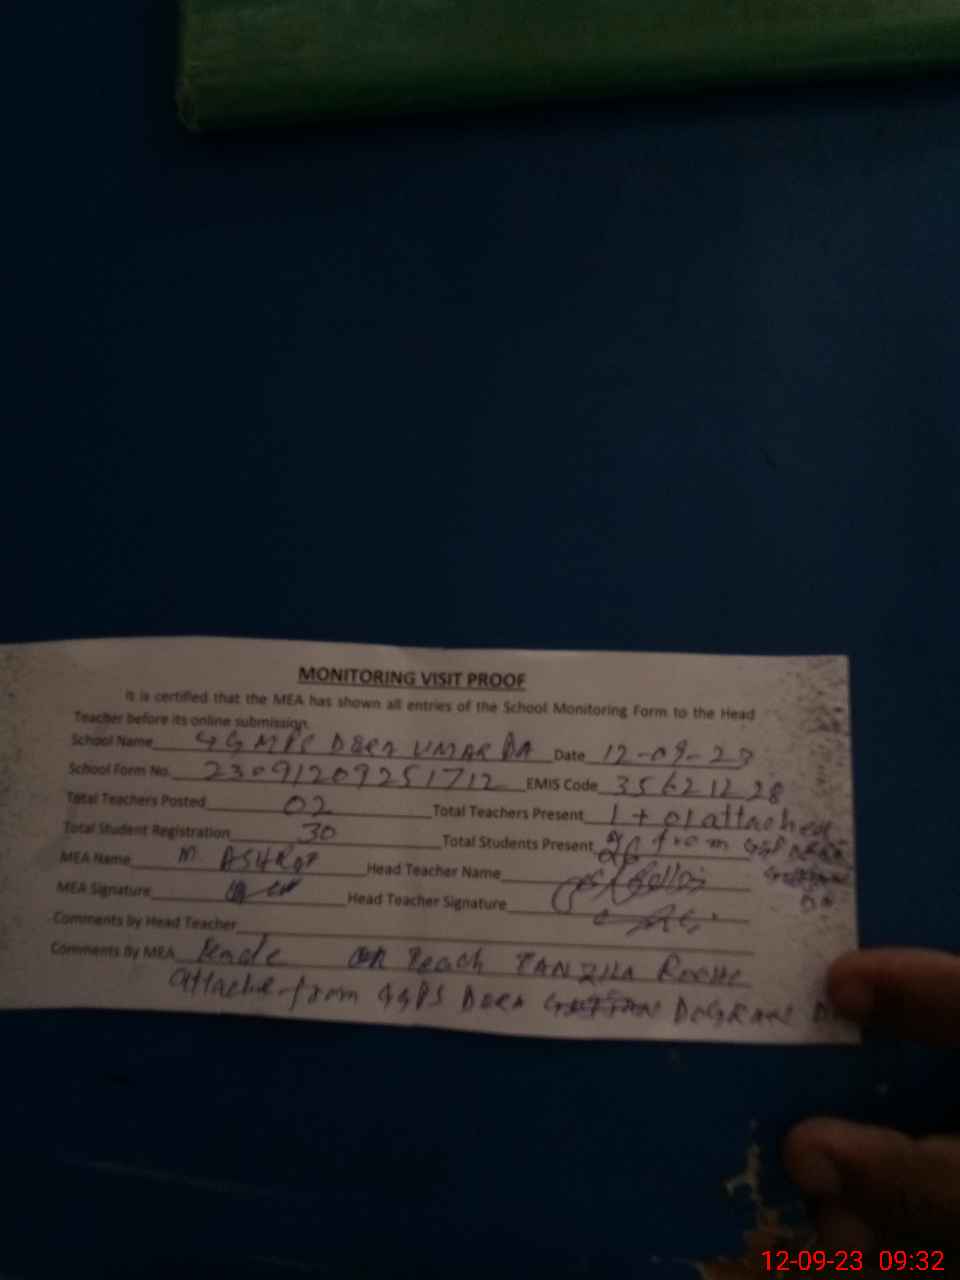 MONITORING VISIT PROOF
It is certified that the MEA has shown all entries of the School Monitoring Form to the Head
Teacher before its online submission.
School Name GGMPS DERA UMAR DA Date 12-09-23
School Form No. 23091209251712 EMIS Code 35621228
Total Teachers Posted 02 Total Teachers Present 1 + 01 attached
Total Student Registration 30 Total Students Present 26 from GGPS DERA
MEA Name M ASHRAF Head Teacher Name
MEA Signature Head Teacher Signature
Comments by Head Teacher
Comments by MEA on TANZILA
attache from GGPS DERA DOGRAN
12-09-23 09:32